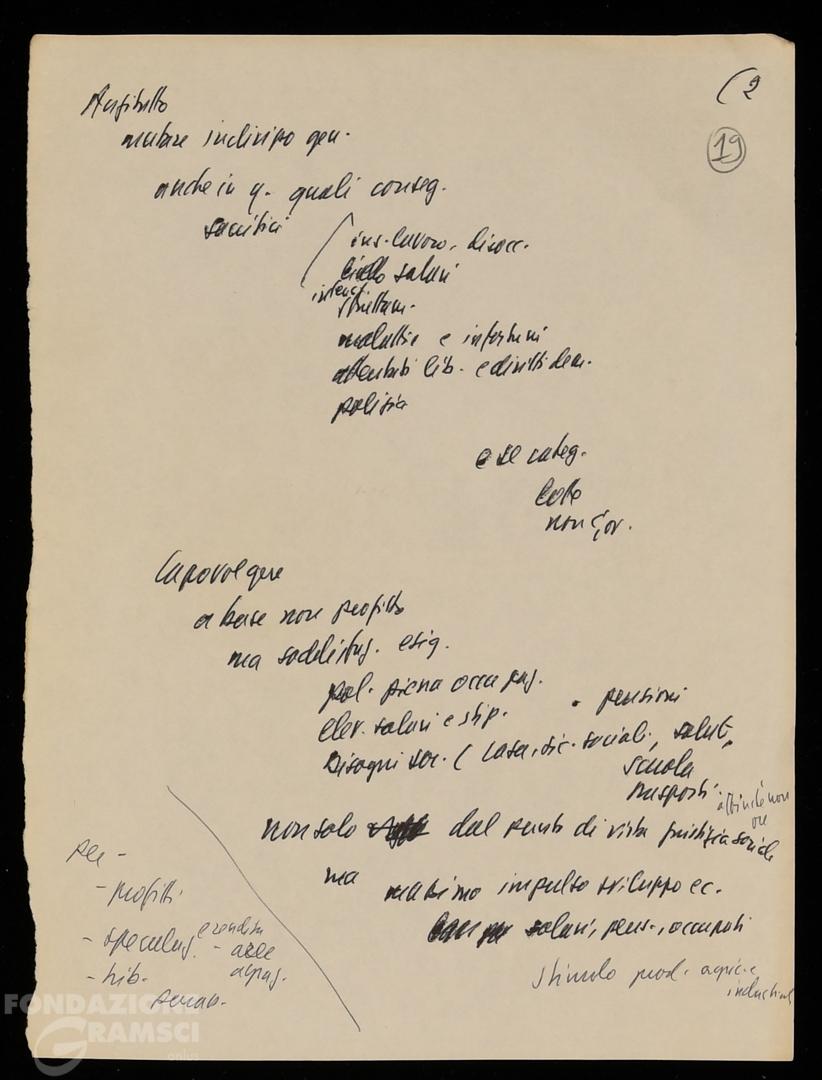 (2
19
Anzitutto
mutare indirizzo gen.
anche in q. quali conseg.
sacrifici
ins. lavoro, disocc.
livello salari
intens.
sfruttam.
malattie e infortuni
attentati lib. e diritti dem.
polizia
e se categ.
lotte
non gov.
Capovolgere
a base non profitto
ma soddisfaz. esig.
pol. piena occupaz.
elev. salari e stip. • pensioni
Bisogni soc. ( casa, sic. sociale, salute,
scuola
trasporti.
affinché non
non solo dal punto di vista giustizia sociale
ma massimo impulso sviluppo ec.
salari, pens., occupati
stimolo prod. agric. e
industriale
per -
- profitti
- speculaz. e rendita
- aree
- lib.
FONDAZIONE
GRAMSCI
onlus